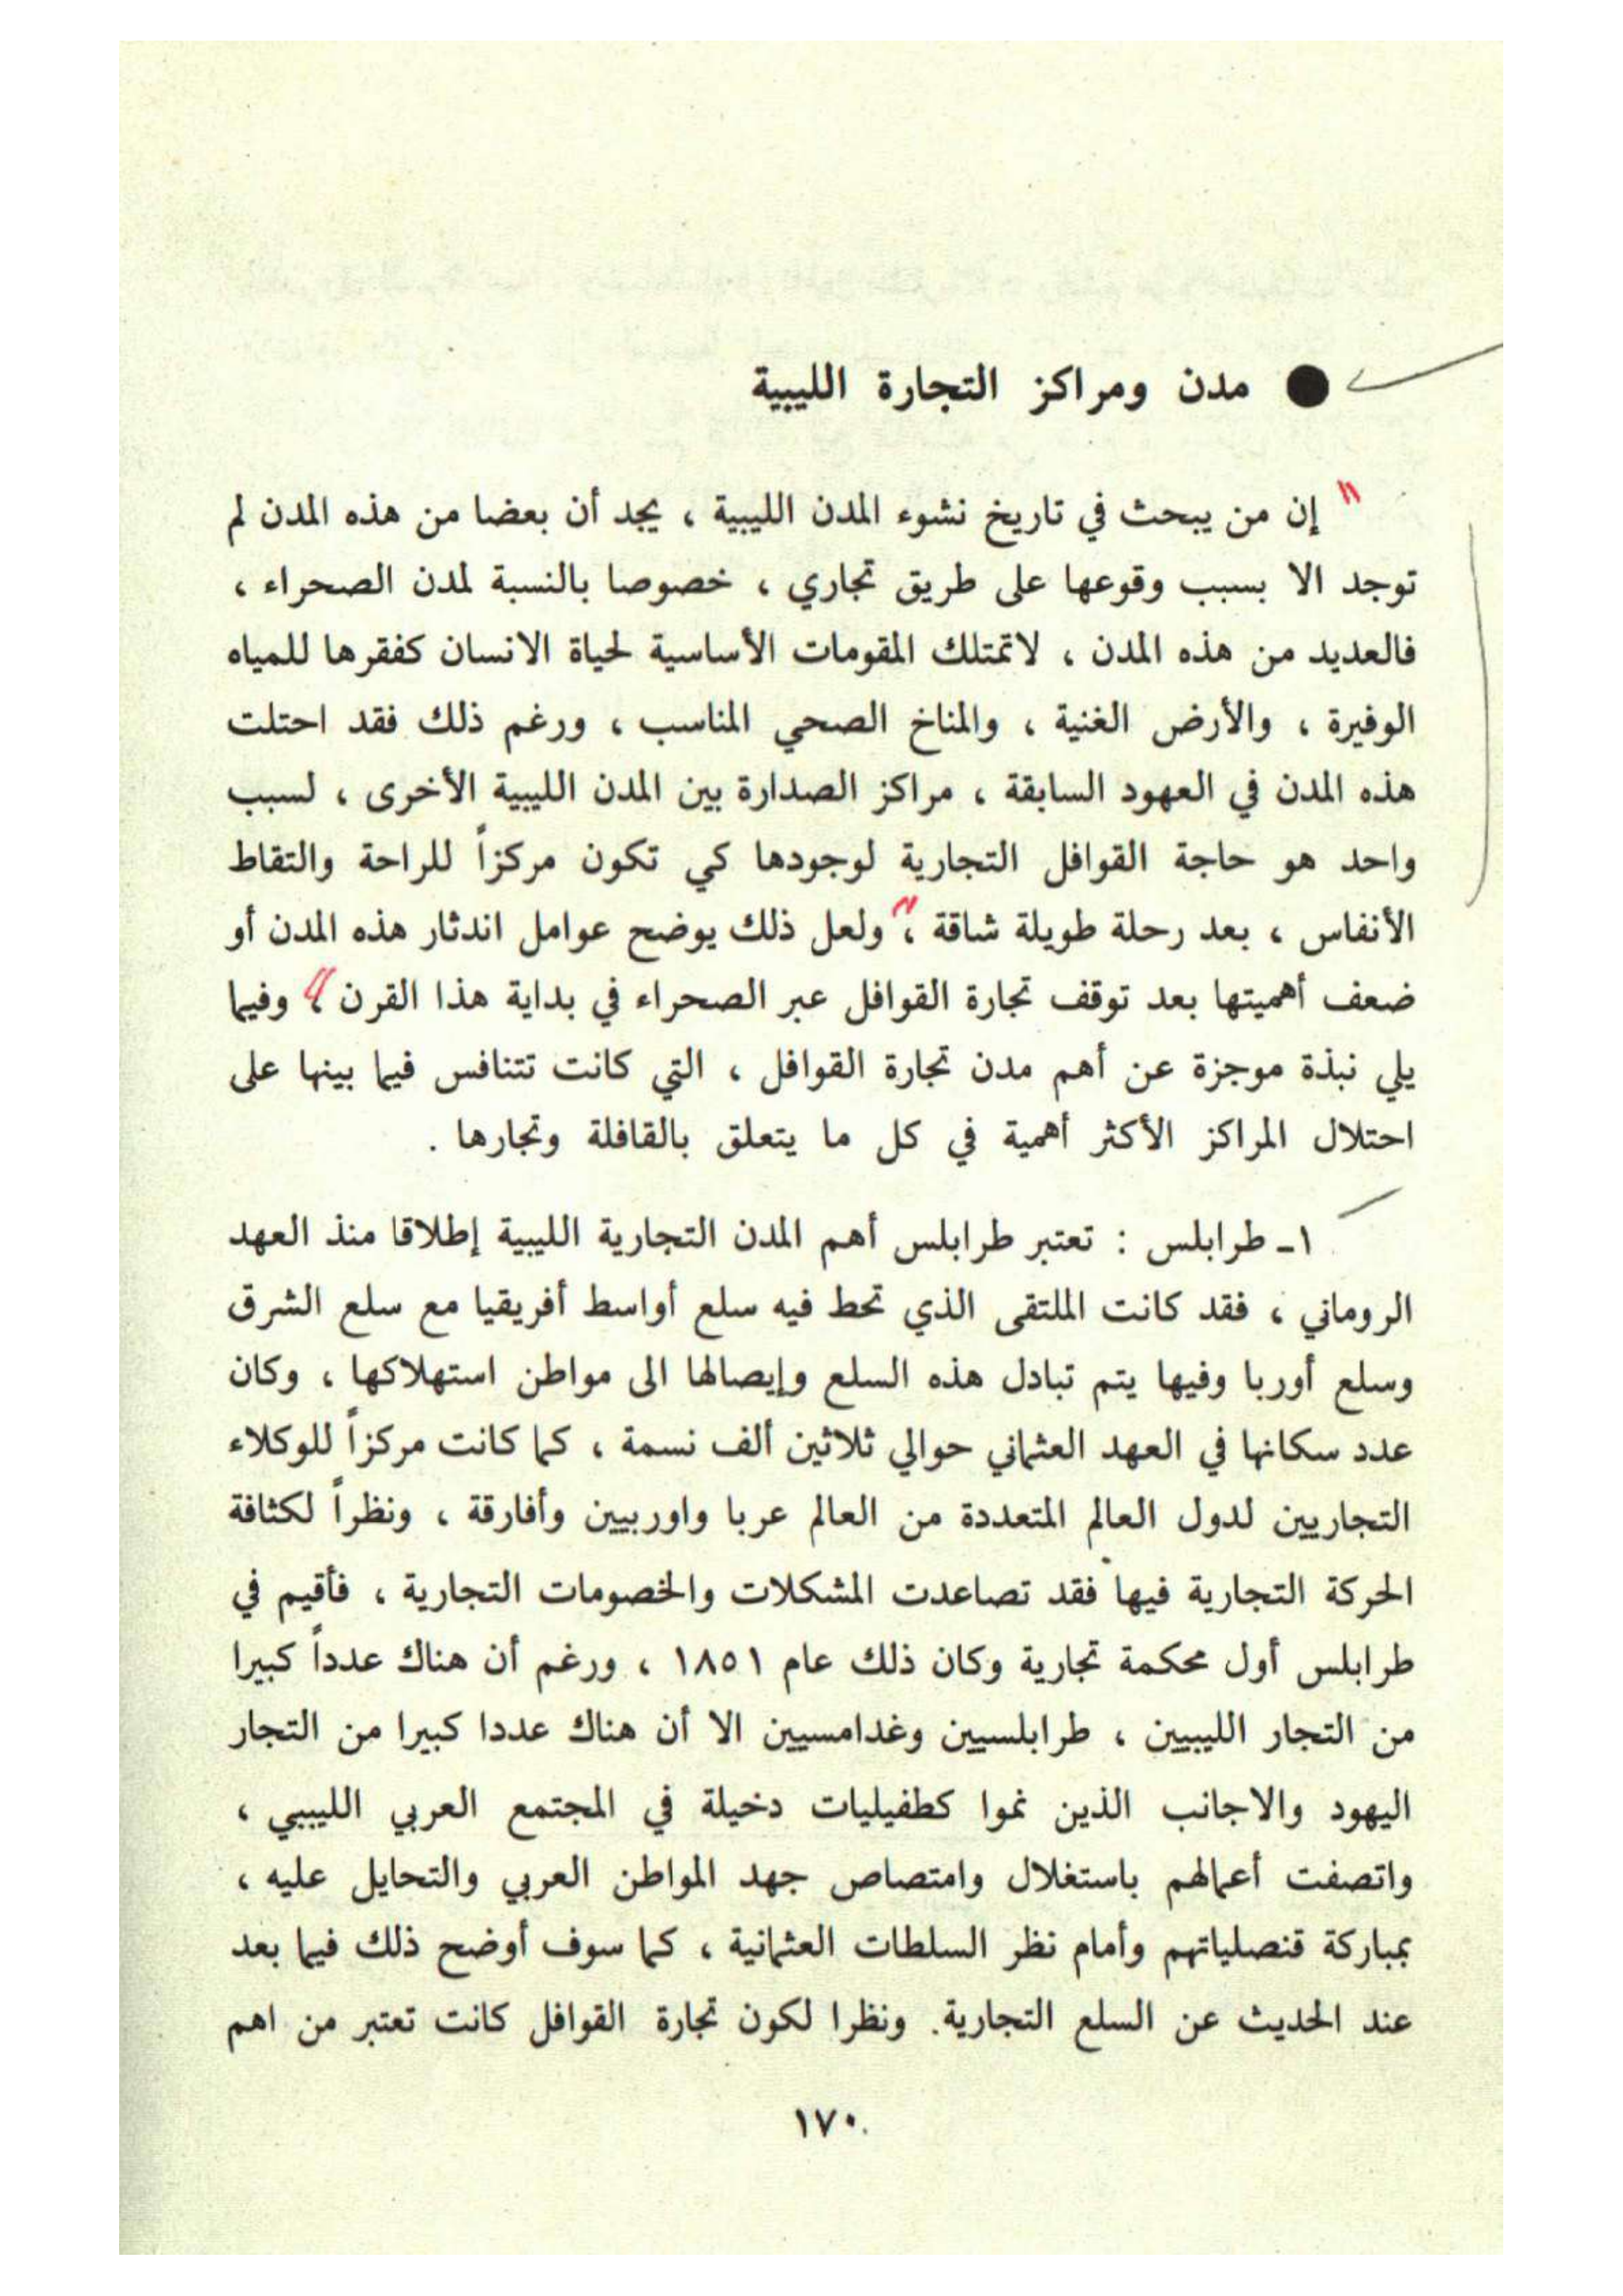 ● مدن ومراكز التجارة الليبية
" إن من يبحث في تاريخ نشوء المدن الليبية ، يجد أن بعضا من هذه المدن لم
توجد الا بسبب وقوعها على طريق تجاري ، خصوصا بالنسبة لمدن الصحراء ،
فالعديد من هذه المدن ، لاتمتلك المقومات الأساسية لحياة الانسان كفقرها للمياه
الوفيرة ، والأرض الغنية ، والمناخ الصحي المناسب ، ورغم ذلك فقد احتلت
هذه المدن في العهود السابقة ، مراكز الصدارة بين المدن الليبية الأخرى ، لسبب
واحد هو حاجة القوافل التجارية لوجودها كي تكون مركزاً للراحة والتقاط
الأنفاس ، بعد رحلة طويلة شاقة ،" ولعل ذلك يوضح عوامل اندثار هذه المدن أو
ضعف أهميتها بعد توقف تجارة القوافل عبر الصحراء في بداية هذا القرن ،" وفيما
يلي نبذة موجزة عن أهم مدن تجارة القوافل ، التي كانت تتنافس فيما بينها على
احتلال المراكز الأكثر أهمية في كل ما يتعلق بالقافلة وتجارها .
١ـ طرابلس : تعتبر طرابلس أهم المدن التجارية الليبية إطلاقا منذ العهد
الروماني ، فقد كانت الملتقى الذي تحط فيه سلع أواسط أفريقيا مع سلع الشرق
وسلع أوربا وفيها يتم تبادل هذه السلع وإيصالها الى مواطن استهلاكها ، وكان
عدد سكانها في العهد العثماني حوالي ثلاثين ألف نسمة ، كما كانت مركزاً للوكلاء
التجاريين لدول العالم المتعددة من العالم عربا واوربيين وأفارقة ، ونظراً لكثافة
الحركة التجارية فيها فقد تصاعدت المشكلات والخصومات التجارية ، فأقيم في
طرابلس أول محكمة تجارية وكان ذلك عام ١٨٥١ ، ورغم أن هناك عدداً كبيرا
من التجار الليبيين ، طرابلسيين وغدامسيين الا أن هناك عددا كبيرا من التجار
اليهود والاجانب الذين نموا كطفيليات دخيلة في المجتمع العربي الليبيي ،
واتصفت أعمالهم باستغلال وامتصاص جهد المواطن العربي والتحايل عليه ،
بمباركة قنصلياتهم وأمام نظر السلطات العثمانية ، كما سوف أوضح ذلك فيما بعد
عند الحديث عن السلع التجارية. ونظرا لكون تجارة القوافل كانت تعتبر من اهم
١٧٠